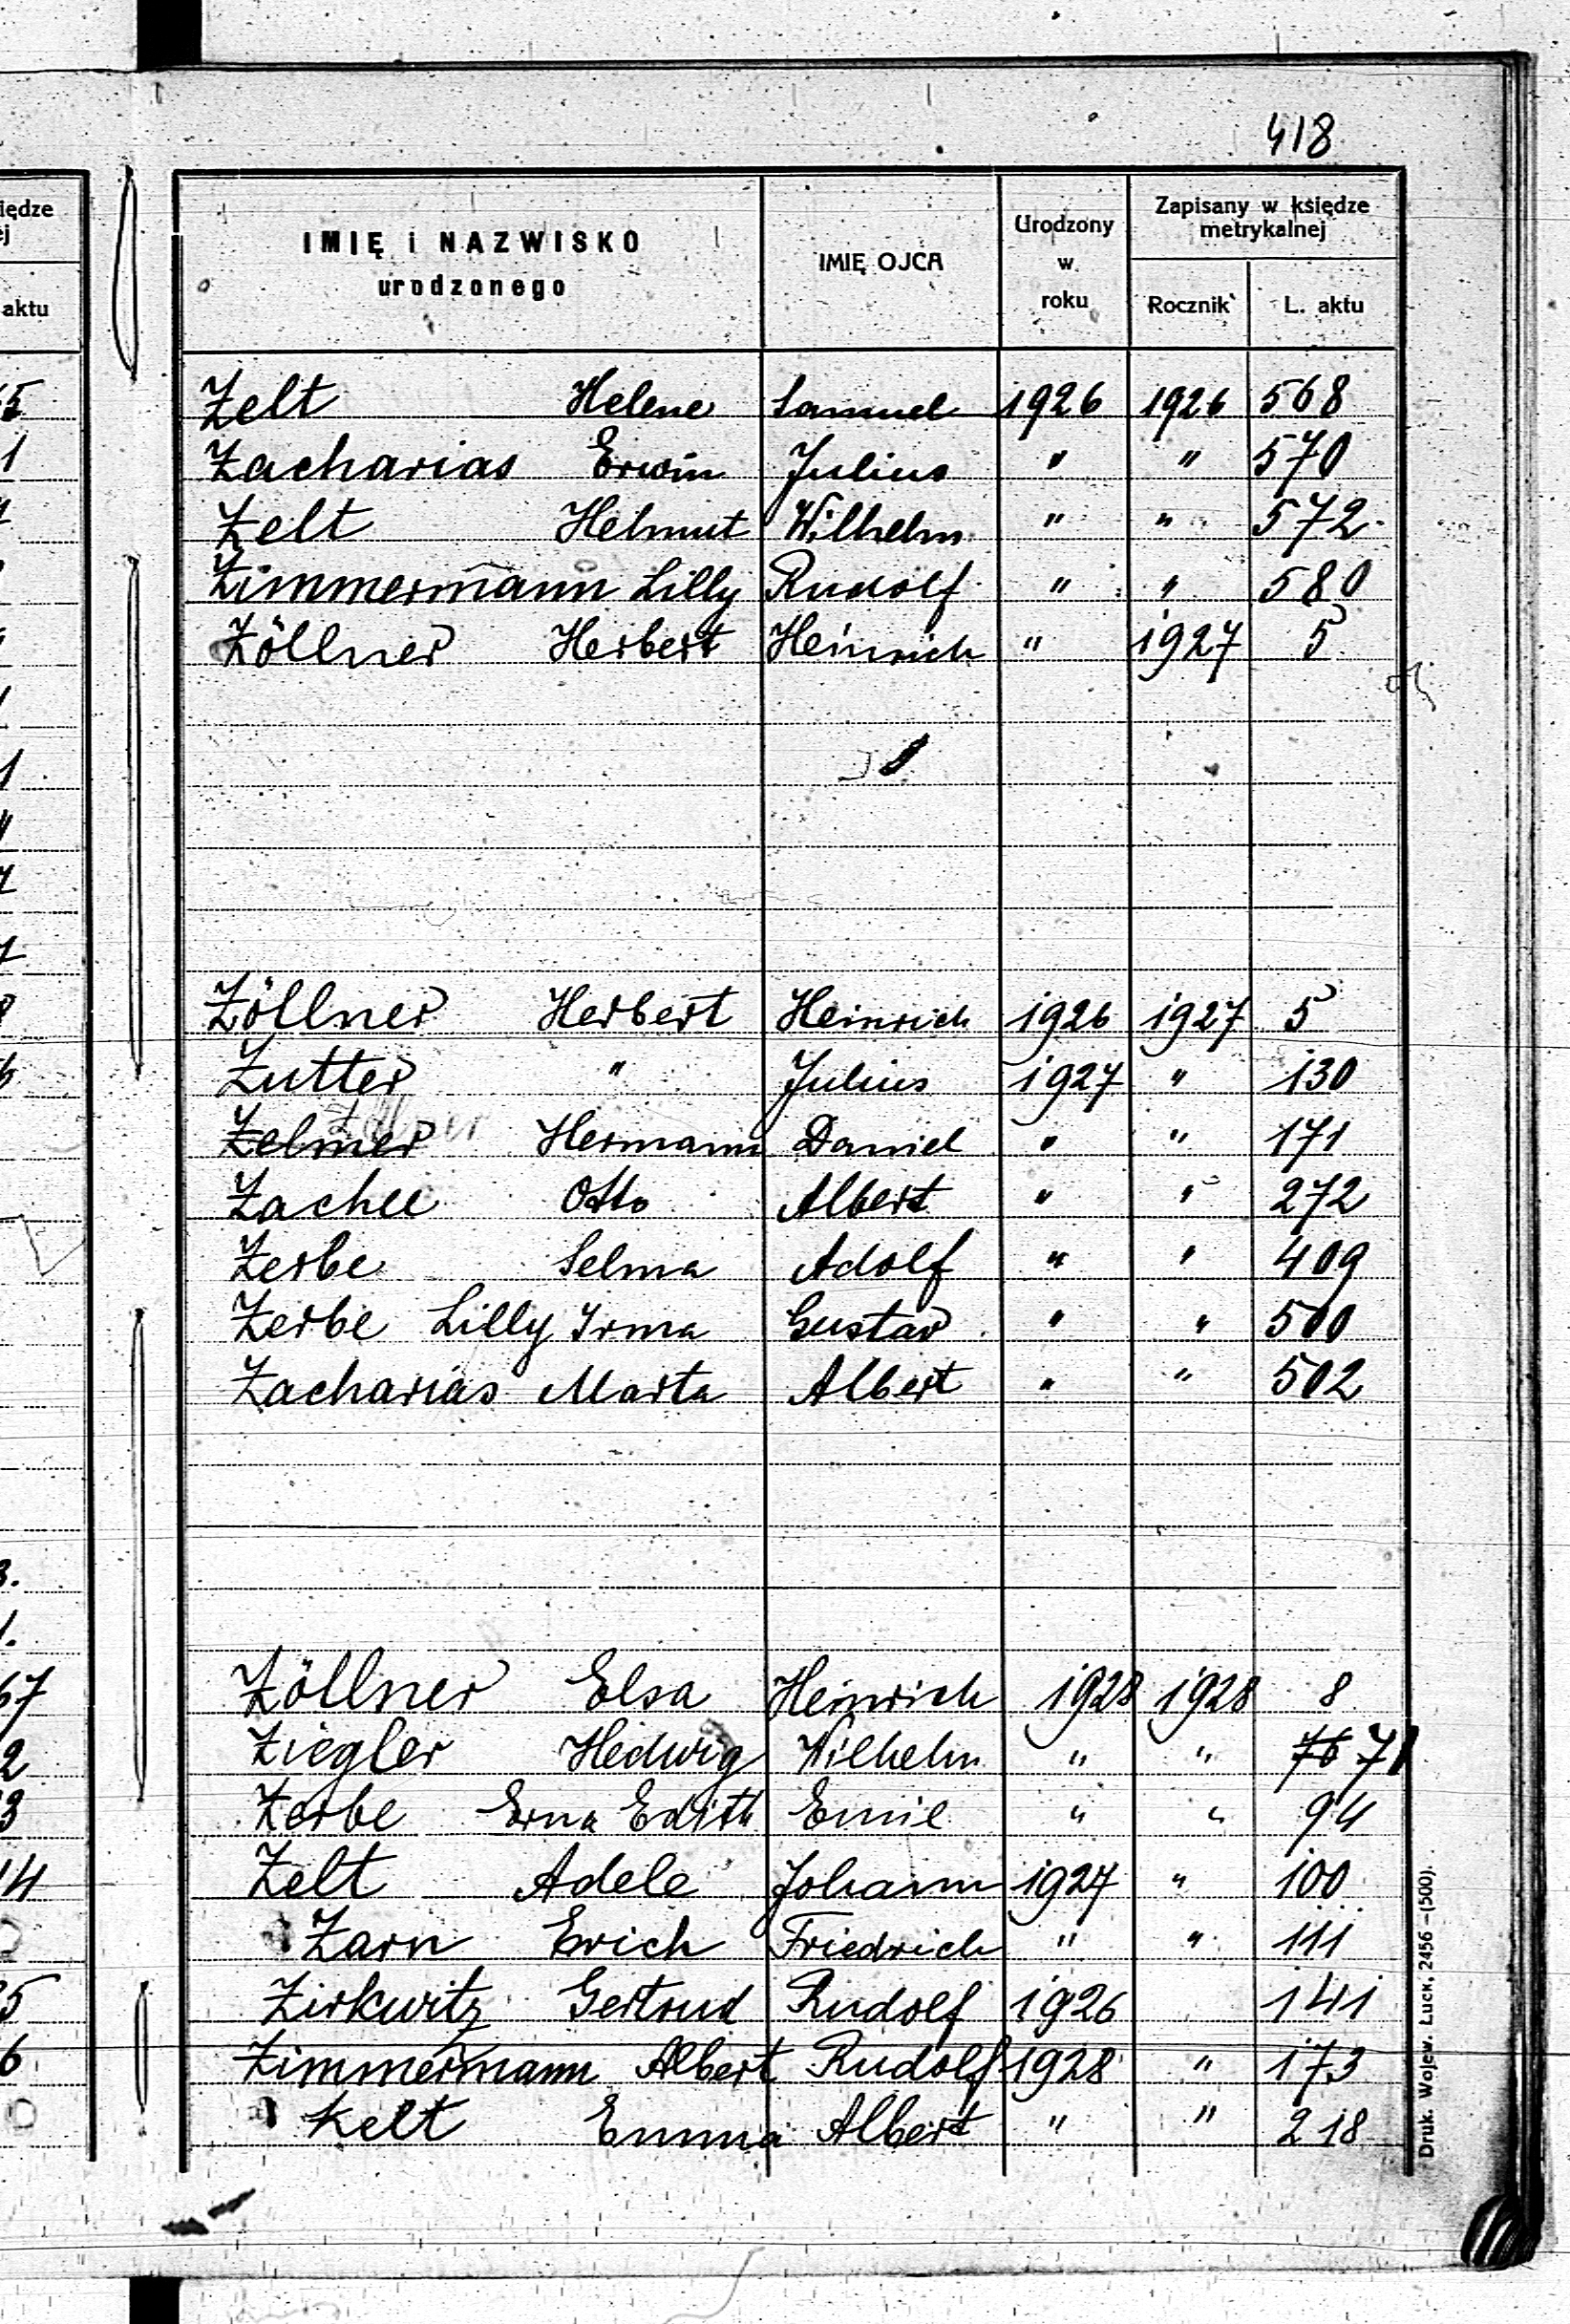 418
iędze
ej
aktu
IMIĘ i NAZWISKO
urodzonego
IMIĘ OJCA
Urodzony
w
roku
Zapisany w księdze
metrykalnej
Rocznik
L. aktu
Zelt Helene Samuel 1926 1926 568
Zacharias Erwin Julius " " 570
Zelt Helmut Wilhelm " " 572
Zimmermann Lilly Rudolf " " 580
Zöllner Herbert Heinrich " 1927 5
Zöllner Herbert Heinrich 1926 1927 5
Zutter " Julius 1927 " 130
Zelmer Hermann Daniel " " 171
Zachee Otto Albert " " 272
Zerbe Selma Adolf " " 409
Zerbe Lilly Irma Gustav " " 500
Zacharias Marta Albert " " 502
Zöllner Elsa Heinrich 1928 1928 8
Ziegler Hedwig Wilhelm " " 76 71
Zerbe Erna Edith Emil " " 94
Zelt Adele Johann 1927 " 100
Zarn Erich Friedrich " " 111
Zirkwitz Gertrud Rudolf 1926 141
Zimmermann Albert Rudolf 1928 " 173
Zelt Emma Albert " " 218
Druk. Wojew. Łuck, 2456—(500).